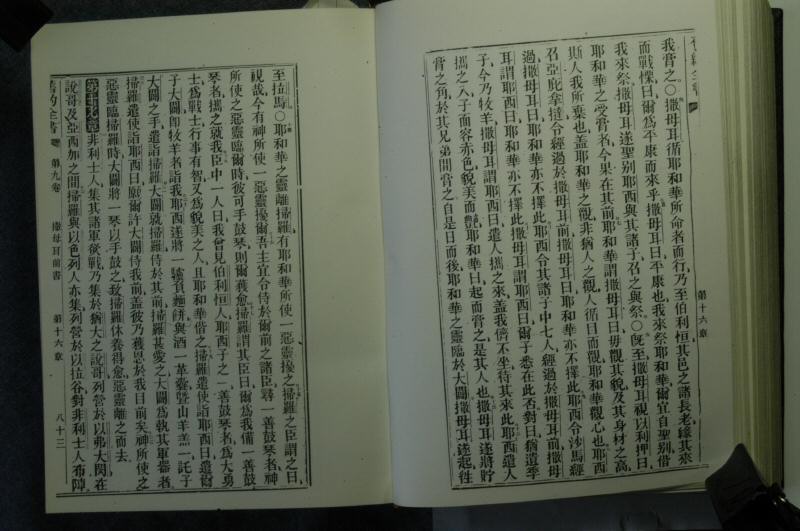 舊約全書
第十六章
我膏之○撒母耳循耶和華所命者而行乃至伯利恒其邑之諸長老緣其來
而戰慄曰爾爲平康而來乎撒母耳曰平康也我來祭耶和華爾宜自聖别偕
我來祭撒母耳遂聖别耶西與其諸子召之與祭○既至撒母耳視以利押曰
耶和華之受膏者今果在其前耶和華謂撒母耳曰毋觀其貌及其身材之高
斯人我所棄也蓋耶和華之觀非猶人之觀人循目而觀耶和華觀心也耶西
召亞庇拿撻令經過於撒母耳前撒母耳曰耶和華亦不擇此耶西令沙馬經
過撒母耳曰耶和華亦不擇此耶西令其諸子中七人經過於撒母耳前撒母
耳謂耶西曰耶和華亦不擇此撒母耳謂耶西曰爾子悉在此否對曰猶遺季
子今乃牧羊撒母耳謂耶西曰遣人攜之來蓋我儕不坐待其來此耶西遣人
攜之入子面容赤色貌美而艷耶和華曰起而膏之是其人也撒母耳遂將貯
膏之角於其兄弟間膏之自是日而後耶和華之靈臨於大闢撒母耳遂起往
至拉馬○耶和華之靈離掃羅有耶和華所使一惡靈擾之掃羅之臣謂之曰
視哉今有神所使一惡靈擾爾吾主宜令侍於爾前之諸臣尋一善鼓琴者神
所使之惡靈臨爾時彼可手鼓琴則爾獲愈掃羅謂其臣曰爾爲我備一善鼓
琴者攜之就我臣中一人曰我曾見伯利恒人耶西子之一善鼓琴者爲大勇
士爲戰士行事有智又爲貌美之人且耶和華偕之掃羅遣使詣耶西曰遣爾
子大闢即牧羊者詣我耶西遂將一驢負麵餅與酒一革囊曁山羊羔一託子
大闢之手遣詣掃羅大闢就掃羅侍於其前掃羅甚愛之大闢爲執其軍器者
掃羅遣使詣耶西曰願爾許大闢侍我前蓋彼乃獲恩於我目前矣神所使之
惡靈臨掃羅時大闢將一琴以手鼓之致掃羅休養得愈惡靈離之而去
第十七章 非利士人集其諸軍欲戰乃集於猶大之說哥列營於以弗大閔在
說哥及亞西加之間掃羅與以色列人亦集列營於以拉谷對非利士人布陣
舊約全書 第九卷 撒母耳前書 第十六章 八十三